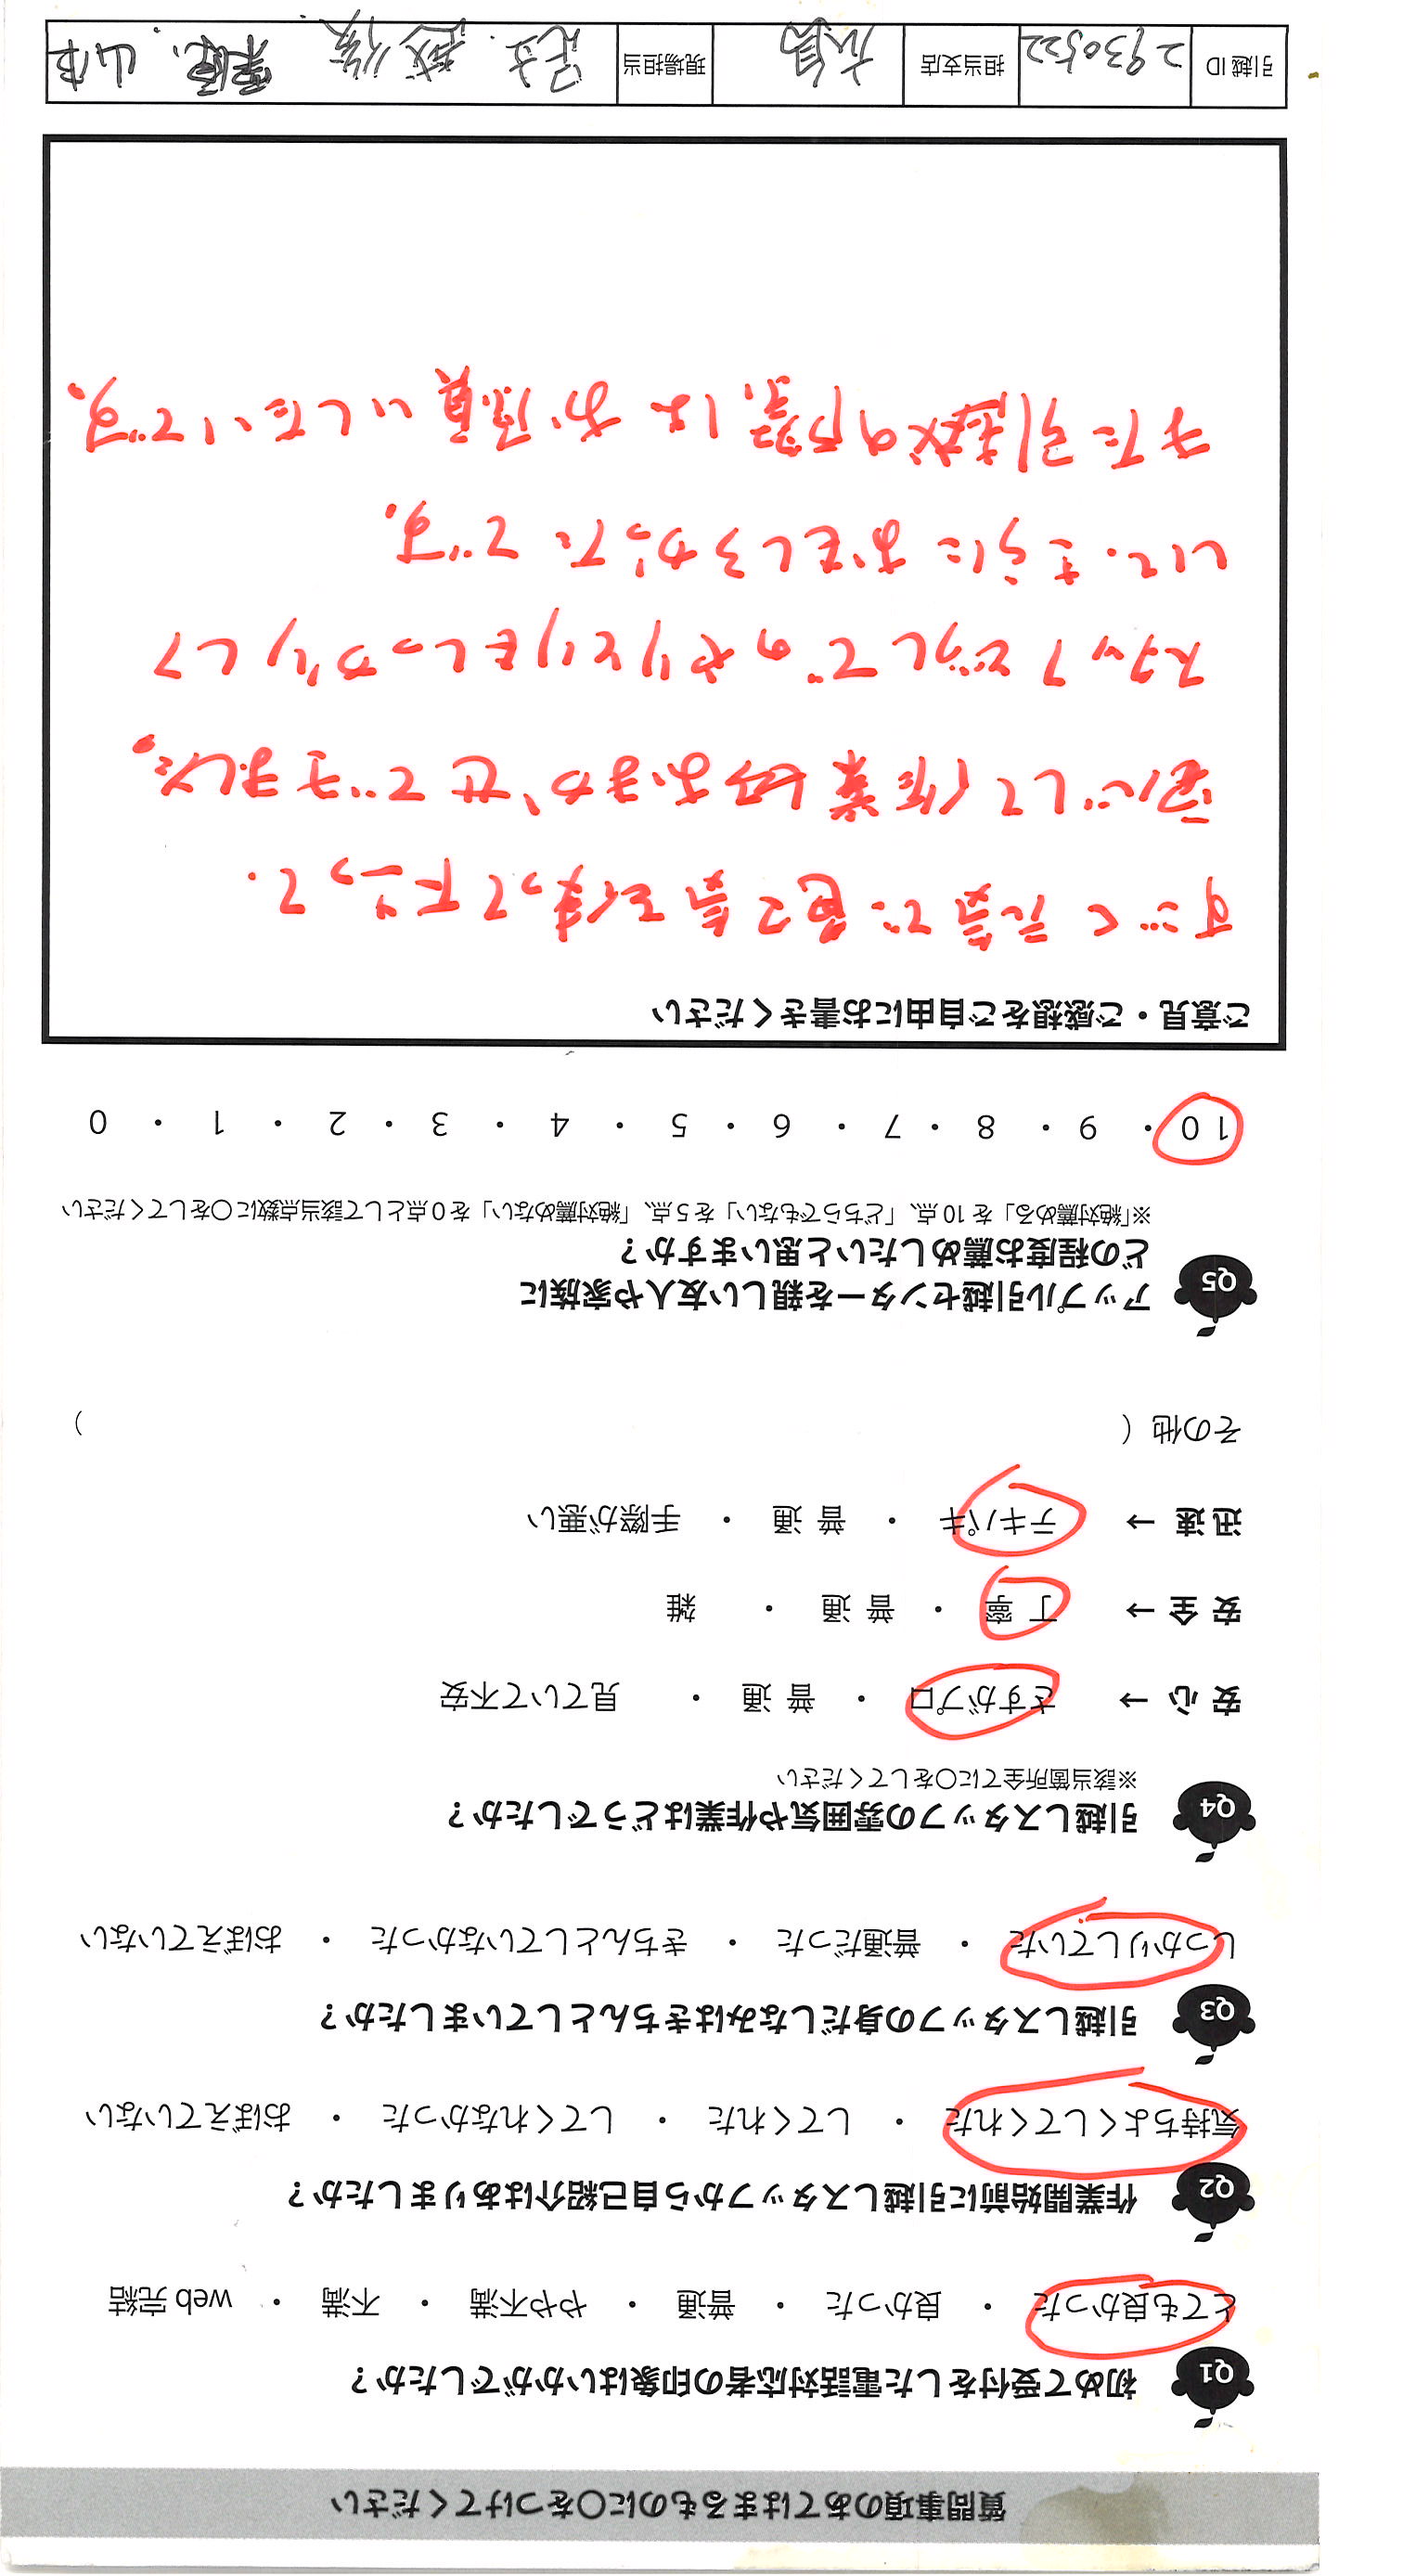 質問事項のあてはまるものに〇をつけてください
Q1 初めて受付をした電話対応者の印象はいかがでしたか？
とても良かった ・ 良かった ・ 普通 ・ やや不満 ・ 不満 ・ web 完結
Q2 作業開始前に引越しスタッフから自己紹介はありましたか？
気持ちよくしてくれた ・ してくれた ・ してくれなかった ・ おぼえていない
Q3 引越しスタッフの身だしなみはきちんとしていましたか？
しっかりしていた ・ 普通だった ・ きちんとしていなかった ・ おぼえていない
Q4 引越しスタッフの雰囲気や作業はどうでしたか？
※該当箇所全てに〇をしてください
安 心 → さすがプロ ・ 普 通 ・ 見ていて不安
安 全 → 丁 寧 ・ 普 通 ・ 雑
迅 速 → テキパキ ・ 普 通 ・ 手際が悪い
その他（ ）
Q5 アップル引越センターを親しい友人や家族に
どの程度お薦めしたいと思いますか？
※「絶対薦める」を 10 点、「どちらでもない」を 5 点、「絶対薦めない」を 0 点として該当点数に〇をしてください
10 ・ 9 ・ 8 ・ 7 ・ 6 ・ 5 ・ 4 ・ 3 ・ 2 ・ 1 ・ 0
ご意見・ご感想をご自由にお書きください
すごく元気で色々気を使って下さって、
安心して作業はおまかせできました。
スタッフどうしでのやりとりもしっかりして
いて、さらにおもしろかったです。
また引越の際はお願いしたいです。
引越 ID 2930522 担当支店 現場担当 足立、越後、栗原、山本